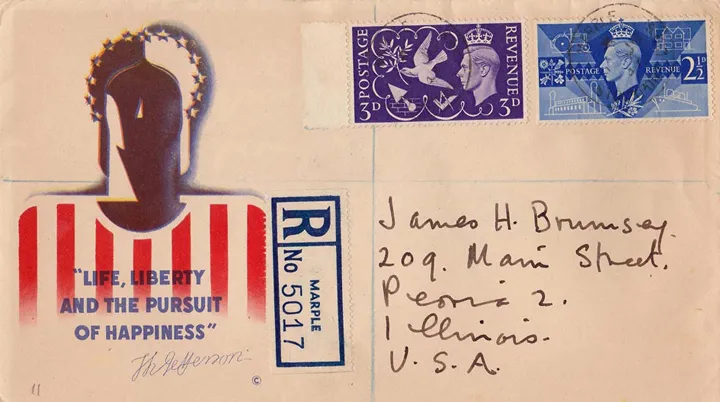 POSTAGE
REVENUE
3D
3D
POSTAGE
REVENUE
2½D
MARPLE
"LIFE, LIBERTY
AND THE PURSUIT
OF HAPPINESS"
Th Jefferson
©
11
R
MARPLE
No 5017
James H. Brumsey.
209. Main Street.
Peoria 2.
Illinois.
U.S.A.